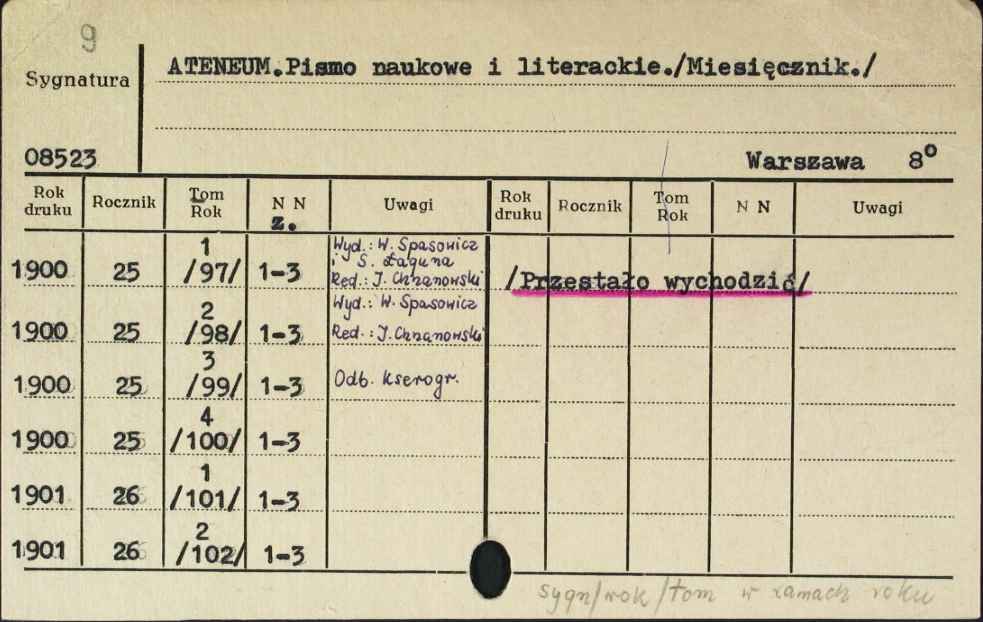 9
Sygnatura ATENEUM.Pismo naukowe i literackie./Miesięcznik./
08523 Warszawa 8°
Rok druku Rocznik Tom Rok N N z. Uwagi Rok druku Rocznik Tom Rok N N Uwagi
1900 25 1 /97/ 1-3 Wyd.: W. Spasowicz i S. Łaguna Red.: J. Chrzanowski /Przestało wychodzić/
1900 25 2 /98/ 1-3 Wyd.: W. Spasowicz Red.: J. Chrzanowski
1900 25 3 /99/ 1-3 Odb. kserogr.
1900 25 4 /100/ 1-3
1901 26 1 /101/ 1-3
1901 26 2 /102/ 1-3
sygn/rok/tom w ramach roku